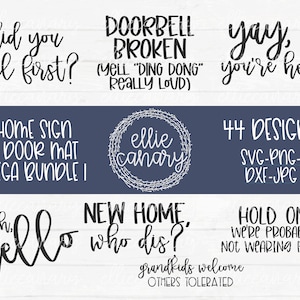 did you
l first?
DOORBELL
BROKEN
(YELL "DING DONG"
REALLY LOUD)
yay,
you're he
HOME SIGN
DOOR MAT
GA BUNDLE 1
ellie
canary
44 DESIGN
SVG-PNG-
DXF-JPG
oh,
hello
NEW HOME,
who dis?
HOLD ON
WE'RE PROBAB
NOT WEARING P
grandkids welcome
OTHERS TOLERATED